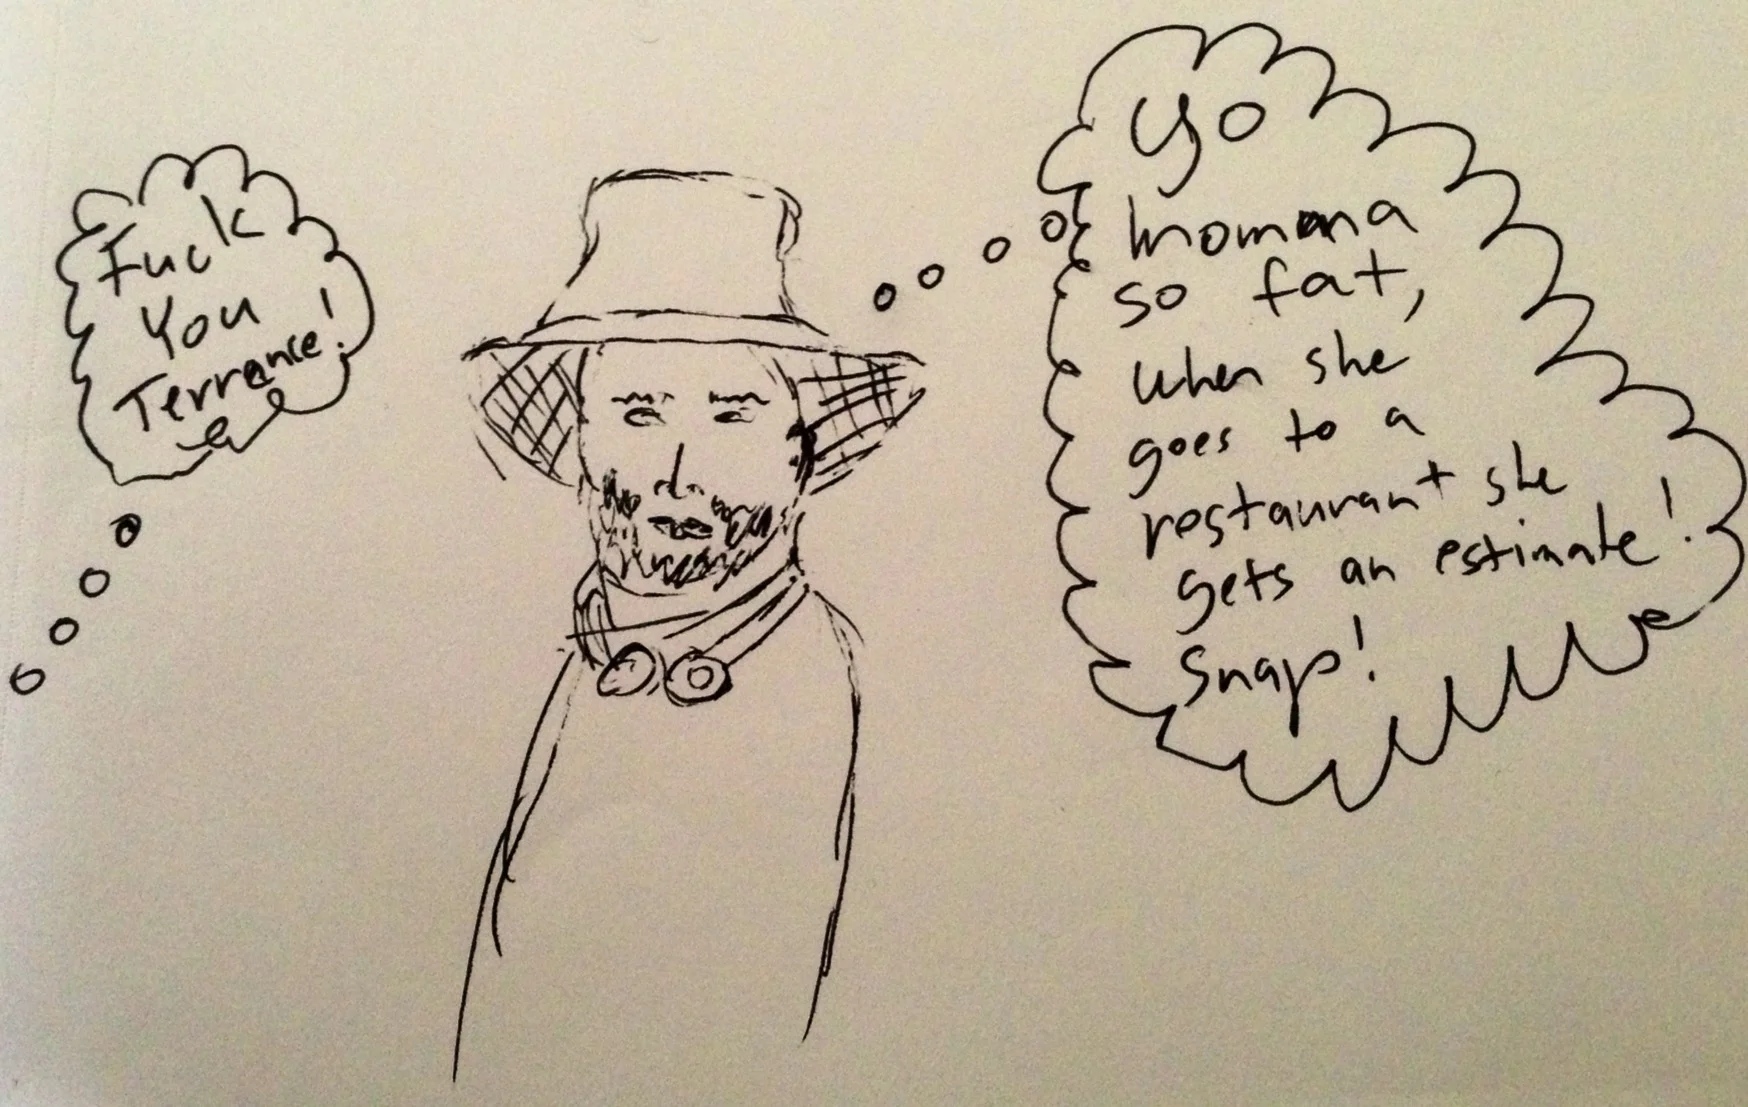 Fuck
You
Terrance!
Yo
momma
so fat,
when she
goes to a
restaurant she
gets an estimate!
Snap!